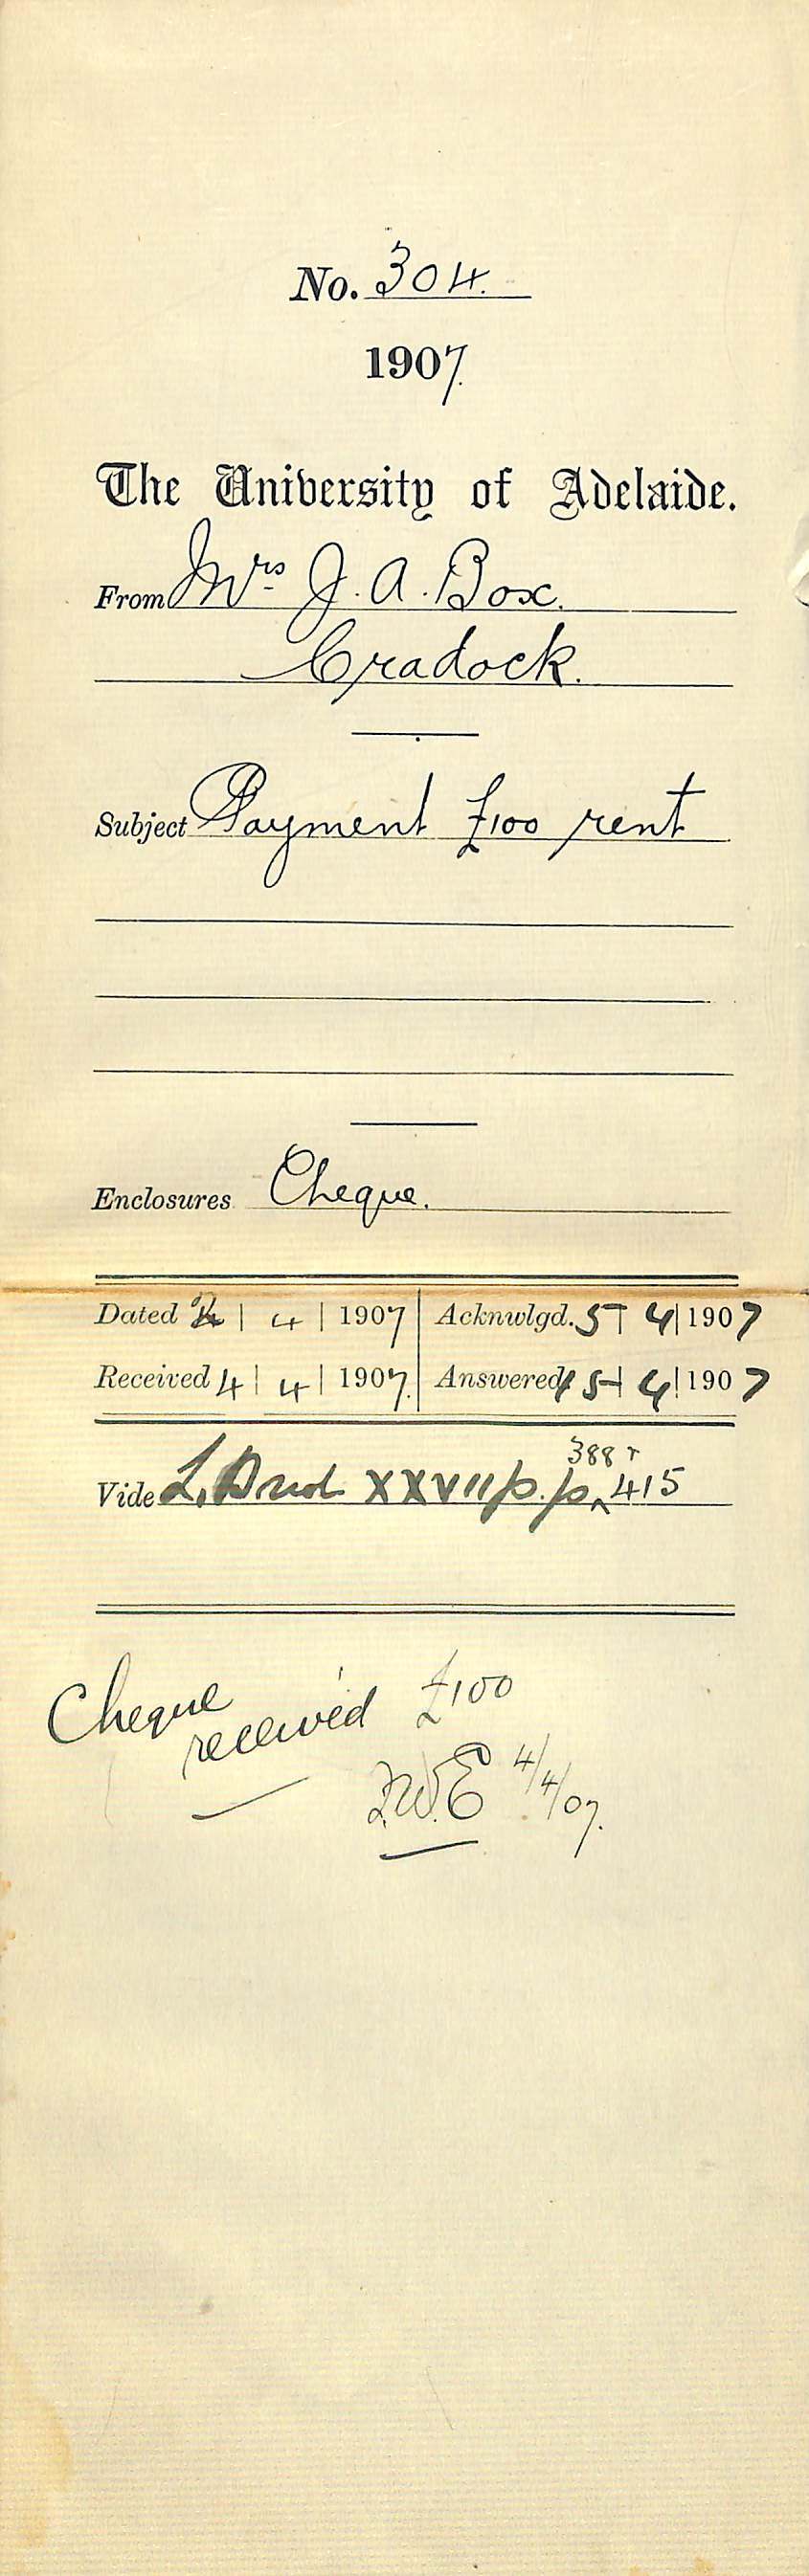 No. 304.
1907.
The University of Adelaide.
From Mrs J. A. Box.
Cradock.
Subject Payment £100 rent
Enclosures Cheque.
Dated | 4 | 1907 Acknwlgd. 5 | 4 | 1907
Received 4 | 4 | 1907. Answered 5 | 4 | 1907
388 r
Vide L. XXVII p.p. ^ 415
Cheque
received £100
4/4/07.